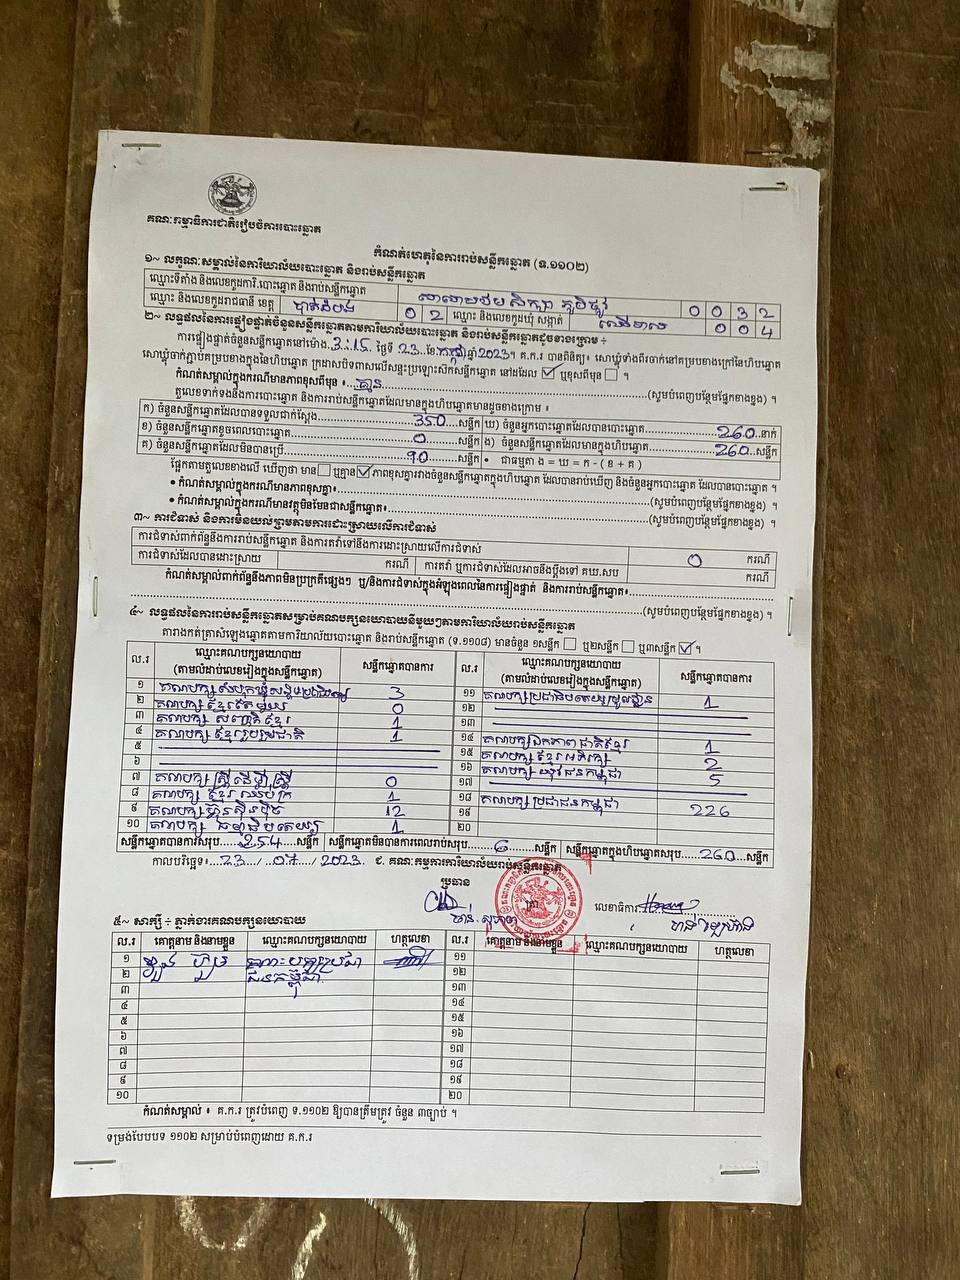 គណៈកម្មាធិការជាតិរៀបចំការបោះឆ្នោត
កំណត់ហេតុនៃការរាប់សន្លឹកឆ្នោត (ទ.១១០២)
១~ លក្ខណៈសម្គាល់នៃការិយាល័យបោះឆ្នោត និងរាប់សន្លឹកឆ្នោត
ឈ្មោះទីតាំង និងលេខកូដការិ.បោះឆ្នោត និងរាប់សន្លឹកឆ្នោត 0 0 3 2
ឈ្មោះ និងលេខកូដរាជធានី ខេត្ត បាត់ដំបង 0 2 ឈ្មោះ និងលេខកូដឃុំ សង្កាត់ 0 0 4
២~ លទ្ធផលនៃការផ្ទៀងផ្ទាត់ចំនួនសន្លឹកឆ្នោតតាមការិយាល័យបោះឆ្នោត និងរាប់សន្លឹកឆ្នោតដូចខាងក្រោម ÷
ការផ្ទៀងផ្ទាត់ចំនួនសន្លឹកឆ្នោតនៅម៉ោង 3:15 ថ្ងៃទី 23 ខែ កក្កដា ឆ្នាំ 2023។ គ.ក.រ បានពិនិត្យ៖ សោឃ្លុំទាំងពីរចាក់នៅគម្របខាងក្រៅនៃហិបឆ្នោត
សោឃ្លុំចាក់ភ្ជាប់គម្របខាងក្នុងនៃហិបឆ្នោត ក្រដាសបិទពាសលើសន្ទះប្រឡោះសិកសន្លឹកឆ្នោត នៅដដែល ✓ ឬខុសពីមុន ។
កំណត់សម្គាល់ក្នុងករណីមានភាពខុសពីមុន ៖ គ្មាន (សូមបំពេញបន្ថែមផ្នែកខាងខ្នង) ។
តួលេខទាក់ទងនឹងការបោះឆ្នោត និងការរាប់សន្លឹកឆ្នោតដែលមានក្នុងហិបឆ្នោតមានដូចខាងក្រោម ៖
ក) ចំនួនសន្លឹកឆ្នោតដែលបានទទួលជាក់ស្តែង 350 សន្លឹក ឃ) ចំនួនអ្នកបោះឆ្នោតដែលបានបោះឆ្នោត 260 នាក់
ខ) ចំនួនសន្លឹកឆ្នោតខូចពេលបោះឆ្នោត 0 សន្លឹក ង) ចំនួនសន្លឹកឆ្នោតដែលមានក្នុងហិបឆ្នោត 260 សន្លឹក
គ) ចំនួនសន្លឹកឆ្នោតដែលមិនបានប្រើ 90 សន្លឹក • ជាធម្មតា ង = ឃ = ក - ( ខ + គ )
ផ្អែកតាមតួលេខខាងលើ ឃើញថា មាន ឬគ្មាន ✓ ភាពខុសគ្នារវាងចំនួនសន្លឹកឆ្នោតក្នុងហិបឆ្នោត ដែលបានរាប់ឃើញ និងចំនួនអ្នកបោះឆ្នោត ដែលបានបោះឆ្នោត ។
• កំណត់សម្គាល់ក្នុងករណីមានភាពខុសគ្នា៖ (សូមបំពេញបន្ថែមផ្នែកខាងខ្នង) ។
• កំណត់សម្គាល់ក្នុងករណីមានវត្ថុមិនមែនជាសន្លឹកឆ្នោត៖ (សូមបំពេញបន្ថែមផ្នែកខាងខ្នង) ។
៣~ ការជំទាស់ និងការមិនយល់ព្រមតាមការដោះស្រាយលើការជំទាស់
ការជំទាស់ពាក់ព័ន្ធនឹងការរាប់សន្លឹកឆ្នោត និងការតវ៉ាទៅនឹងការដោះស្រាយលើការជំទាស់ 0 ករណី
ការជំទាស់ដែលបានដោះស្រាយ ករណី ការតវ៉ា ឬការជំទាស់ដែលអាចនឹងប្តឹងទៅ គឃ.សប ករណី
កំណត់សម្គាល់ពាក់ព័ន្ធនឹងភាពមិនប្រក្រតីផ្សេងៗ ឬ/និងការជំទាស់ក្នុងអំឡុងពេលនៃការផ្ទៀងផ្ទាត់ និងការរាប់សន្លឹកឆ្នោត៖
(សូមបំពេញបន្ថែមផ្នែកខាងខ្នង) ។
៤~ លទ្ធផលនៃការរាប់សន្លឹកឆ្នោតសម្រាប់គណបក្សនយោបាយនីមួយៗតាមការិយាល័យរាប់សន្លឹកឆ្នោត
តារាងកត់ត្រាសំឡេងឆ្នោតតាមការិយាល័យបោះឆ្នោត និងរាប់សន្លឹកឆ្នោត (ទ.១១០៨) មានចំនួន ១សន្លឹក ឬ២សន្លឹក ឬ៣សន្លឹក ✓ ។
ល.រ ឈ្មោះគណបក្សនយោបាយ (តាមលំដាប់លេខរៀងក្នុងសន្លឹកឆ្នោត) សន្លឹកឆ្នោតបានការ ល.រ ឈ្មោះគណបក្សនយោបាយ (តាមលំដាប់លេខរៀងក្នុងសន្លឹកឆ្នោត) សន្លឹកឆ្នោតបានការ
១ 3 ១១ គណបក្សប្រជាធិបតេយ្យមូលដ្ឋាន 1
២ គណបក្ស ខ្មែរតែមួយ 0 ១២
៣ គណបក្ស សញ្ជាតិខ្មែរ 1 ១៣
៤ គណបក្ស ខ្មែររួបរួមជាតិ 1 ១៤ គណបក្សឯកភាពជាតិខ្មែរ 1
៥ ១៥ គណបក្ស ខ្មែរអភិរក្ស 2
៦ ១៦ គណបក្ស យុវជនកម្ពុជា 5
៧ គណបក្ស ស្ត្រីដើម្បីស្ត្រី 0 ១៧
៨ គណបក្ស ខ្មែរឈប់ក្រ 1 ១៨ គណបក្ស ប្រជាជនកម្ពុជា 226
៩ គណបក្សហ៊្វុនស៊ិនប៉ិច 12 ១៩
១០ គណបក្ស ធម្មាធិបតេយ្យ 1 ២០
សន្លឹកឆ្នោតបានការសរុប 254 សន្លឹក សន្លឹកឆ្នោតមិនបានការពេលរាប់សរុប 6 សន្លឹក សន្លឹកឆ្នោតក្នុងហិបឆ្នោតសរុប 260 សន្លឹក
កាលបរិច្ឆេទ៖ 23 / 07 / 2023 ជ. គណៈកម្មការការិយាល័យរាប់សន្លឹកឆ្នោត
ប្រធាន លេខាធិការ
៥~ សាក្សី ÷ ភ្នាក់ងារគណបក្សនយោបាយ
ល.រ គោត្តនាម និងនាមខ្លួន ឈ្មោះគណបក្សនយោបាយ ហត្ថលេខា ល.រ គោត្តនាម និងនាមខ្លួន ឈ្មោះគណបក្សនយោបាយ ហត្ថលេខា
១ គណៈបក្សប្រជា ១១
២ ជនកម្ពុជា ១២
៣ ១៣
៤ ១៤
៥ ១៥
៦ ១៦
៧ ១៧
៨ ១៨
៩ ១៩
១០ ២០
កំណត់សម្គាល់ ៖ គ.ក.រ ត្រូវបំពេញ ទ.១១០២ ឱ្យបានត្រឹមត្រូវ ចំនួន ៣ច្បាប់ ។
ទម្រង់បែបបទ ១១០២ សម្រាប់បំពេញដោយ គ.ក.រ